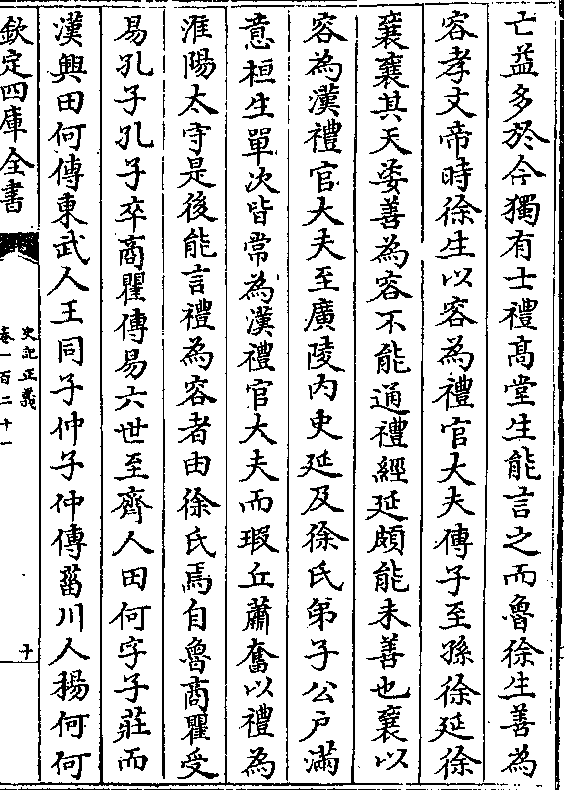 亡益多於今獨有士禮髙堂生能言之而魯徐生善為
容孝文帝時徐生以容為禮官大夫傳子至孫徐延徐
襄襄其天姿善為容不能通禮經延頗能未善也襄以
容為漢禮官大夫至廣陵内史延及徐氏弟子公户滿
意桓生單次皆常為漢禮官大夫而瑕丘蕭奮以禮為
淮陽太守是後能言禮為容者由徐氏焉自魯商瞿受
易孔子孔子卒商瞿傳易六世至齊人田何字子莊而
漢興田何傳東武人王同子仲子仲傳菑川人楊何何
欽定四庫全書
史記正義
卷一百二十一